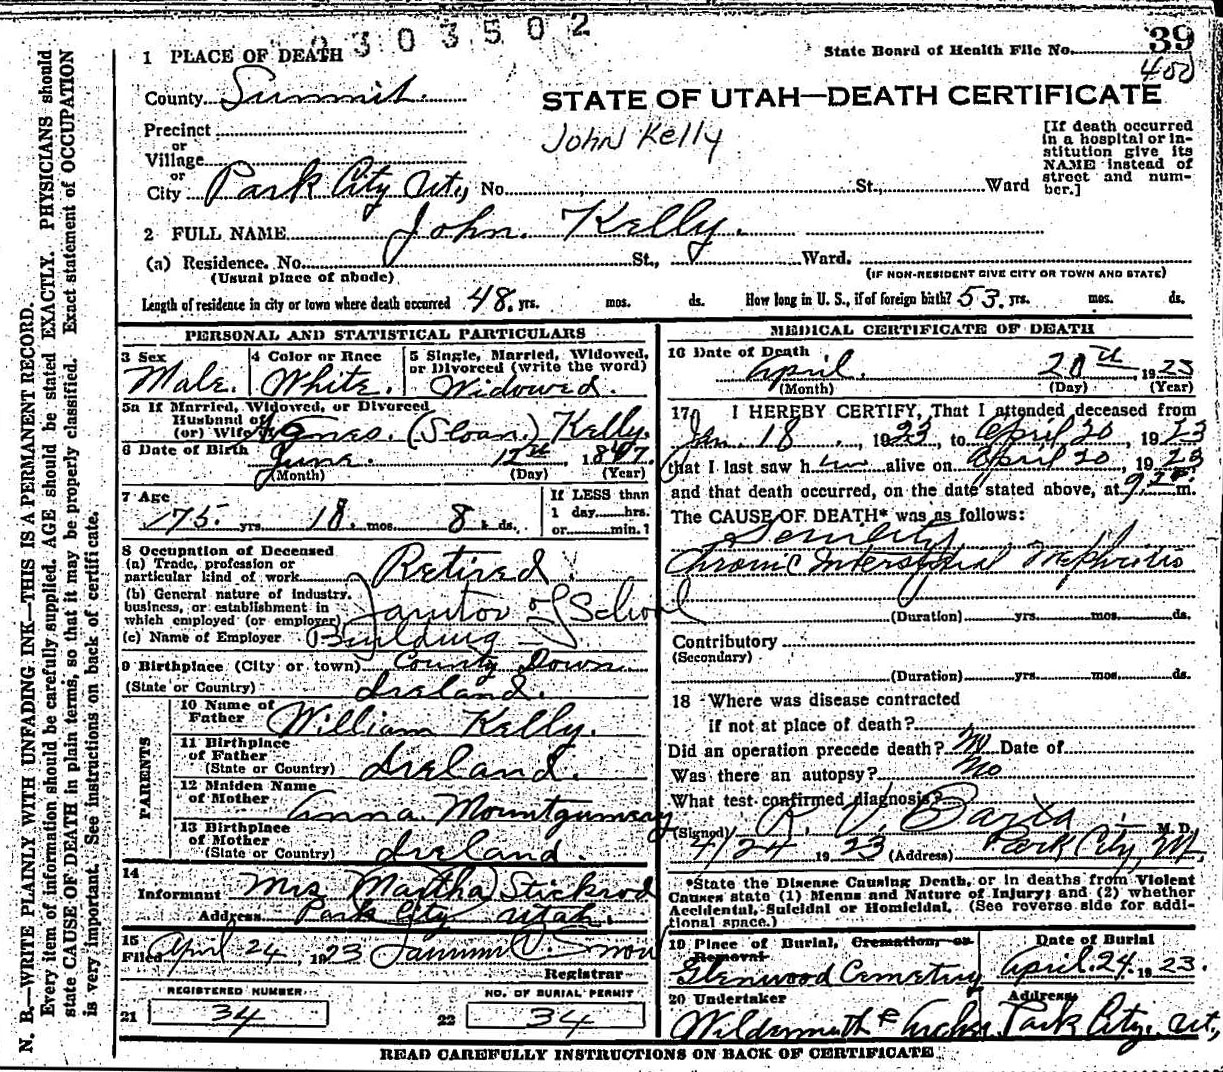 2303502
State Board of Health File No. 39
400
1 PLACE OF DEATH
County Summit.
STATE OF UTAH—DEATH CERTIFICATE
John Kelly
[If death occurred in a hospital or institution give its NAME instead of street and number.]
Precinct
or
Village
or
City Park City Ut., No. St., Ward
2 FULL NAME John. Kelly.
(a) Residence. No. St., Ward.
(Usual place of abode) (IF NON-RESIDENT GIVE CITY OR TOWN AND STATE)
Length of residence in city or town where death occurred 48 yrs. mos. ds. How long in U. S., if of foreign birth? 53 yrs. mos. ds.
PERSONAL AND STATISTICAL PARTICULARS
3 Sex Male. 4 Color or Race White. 5 Single, Married, Widowed, or Divorced (write the word) Widowed.
5a If Married, Widowed, or Divorced
Husband of
(or) Wife of Agnes. (Sloan.) Kelly.
6 Date of Birth June. 12th 1847.
(Month) (Day) (Year)
7 Age 75 yrs. 10 mos. 8 ds. If LESS than 1 day hrs. or min.?
8 Occupation of Deceased
(a) Trade, profession or particular kind of work Retired
(b) General nature of industry, business, or establishment in which employed (or employer) Janitor of School
(c) Name of Employer Building
9 Birthplace (City or town) County Down
(State or Country) Ireland.
PARENTS
10 Name of Father William Kelly.
11 Birthplace of Father (State or Country) Ireland.
12 Maiden Name of Mother Anna Mountgumeay
13 Birthplace of Mother (State or Country) Ireland.
14
Informant Mrs Martha Stickrod
Address Park City Utah.
15
Filed April 24, 1923 Snow
Registrar
REGISTERED NUMBER NO. OF BURIAL PERMIT
21 34 22 34
MEDICAL CERTIFICATE OF DEATH
16 Date of Death
April. 20th, 1923
(Month) (Day) (Year)
17 I HEREBY CERTIFY, That I attended deceased from
Jan. 18, 1923, to April 20, 1923
that I last saw him alive on April 20, 1923
and that death occurred, on the date stated above, at m.
The CAUSE OF DEATH* was as follows:
Senility
Chronic Interstitial Nephritis
(Duration) yrs. mos. ds.
Contributory
(Secondary)
(Duration) yrs. mos. ds.
18 Where was disease contracted
if not at place of death?
Did an operation precede death? No Date of
Was there an autopsy? No
What test confirmed diagnosis?
(Signed) R. V. Barta M. D.
4/24 1923 (Address) Park City, Ut.
*State the Disease Causing Death, or in deaths from Violent Causes state (1) Means and Nature of Injury; and (2) whether Accidental, Suicidal or Homicidal. (See reverse side for additional space.)
19 Place of Burial, Cremation, or Removal Date of Burial
Glenwood Cemetery April. 24. 1923.
20 Undertaker Address
Wildermuth & Archer Park City. Ut.,
READ CAREFULLY INSTRUCTIONS ON BACK OF CERTIFICATE
N. B.—WRITE PLAINLY WITH UNFADING INK—THIS IS A PERMANENT RECORD.
Every item of information should be carefully supplied. AGE should be stated EXACTLY. PHYSICIANS should
state CAUSE OF DEATH in plain terms, so that it may be properly classified. Exact statement of OCCUPATION
is very important. See instructions on back of certificate.